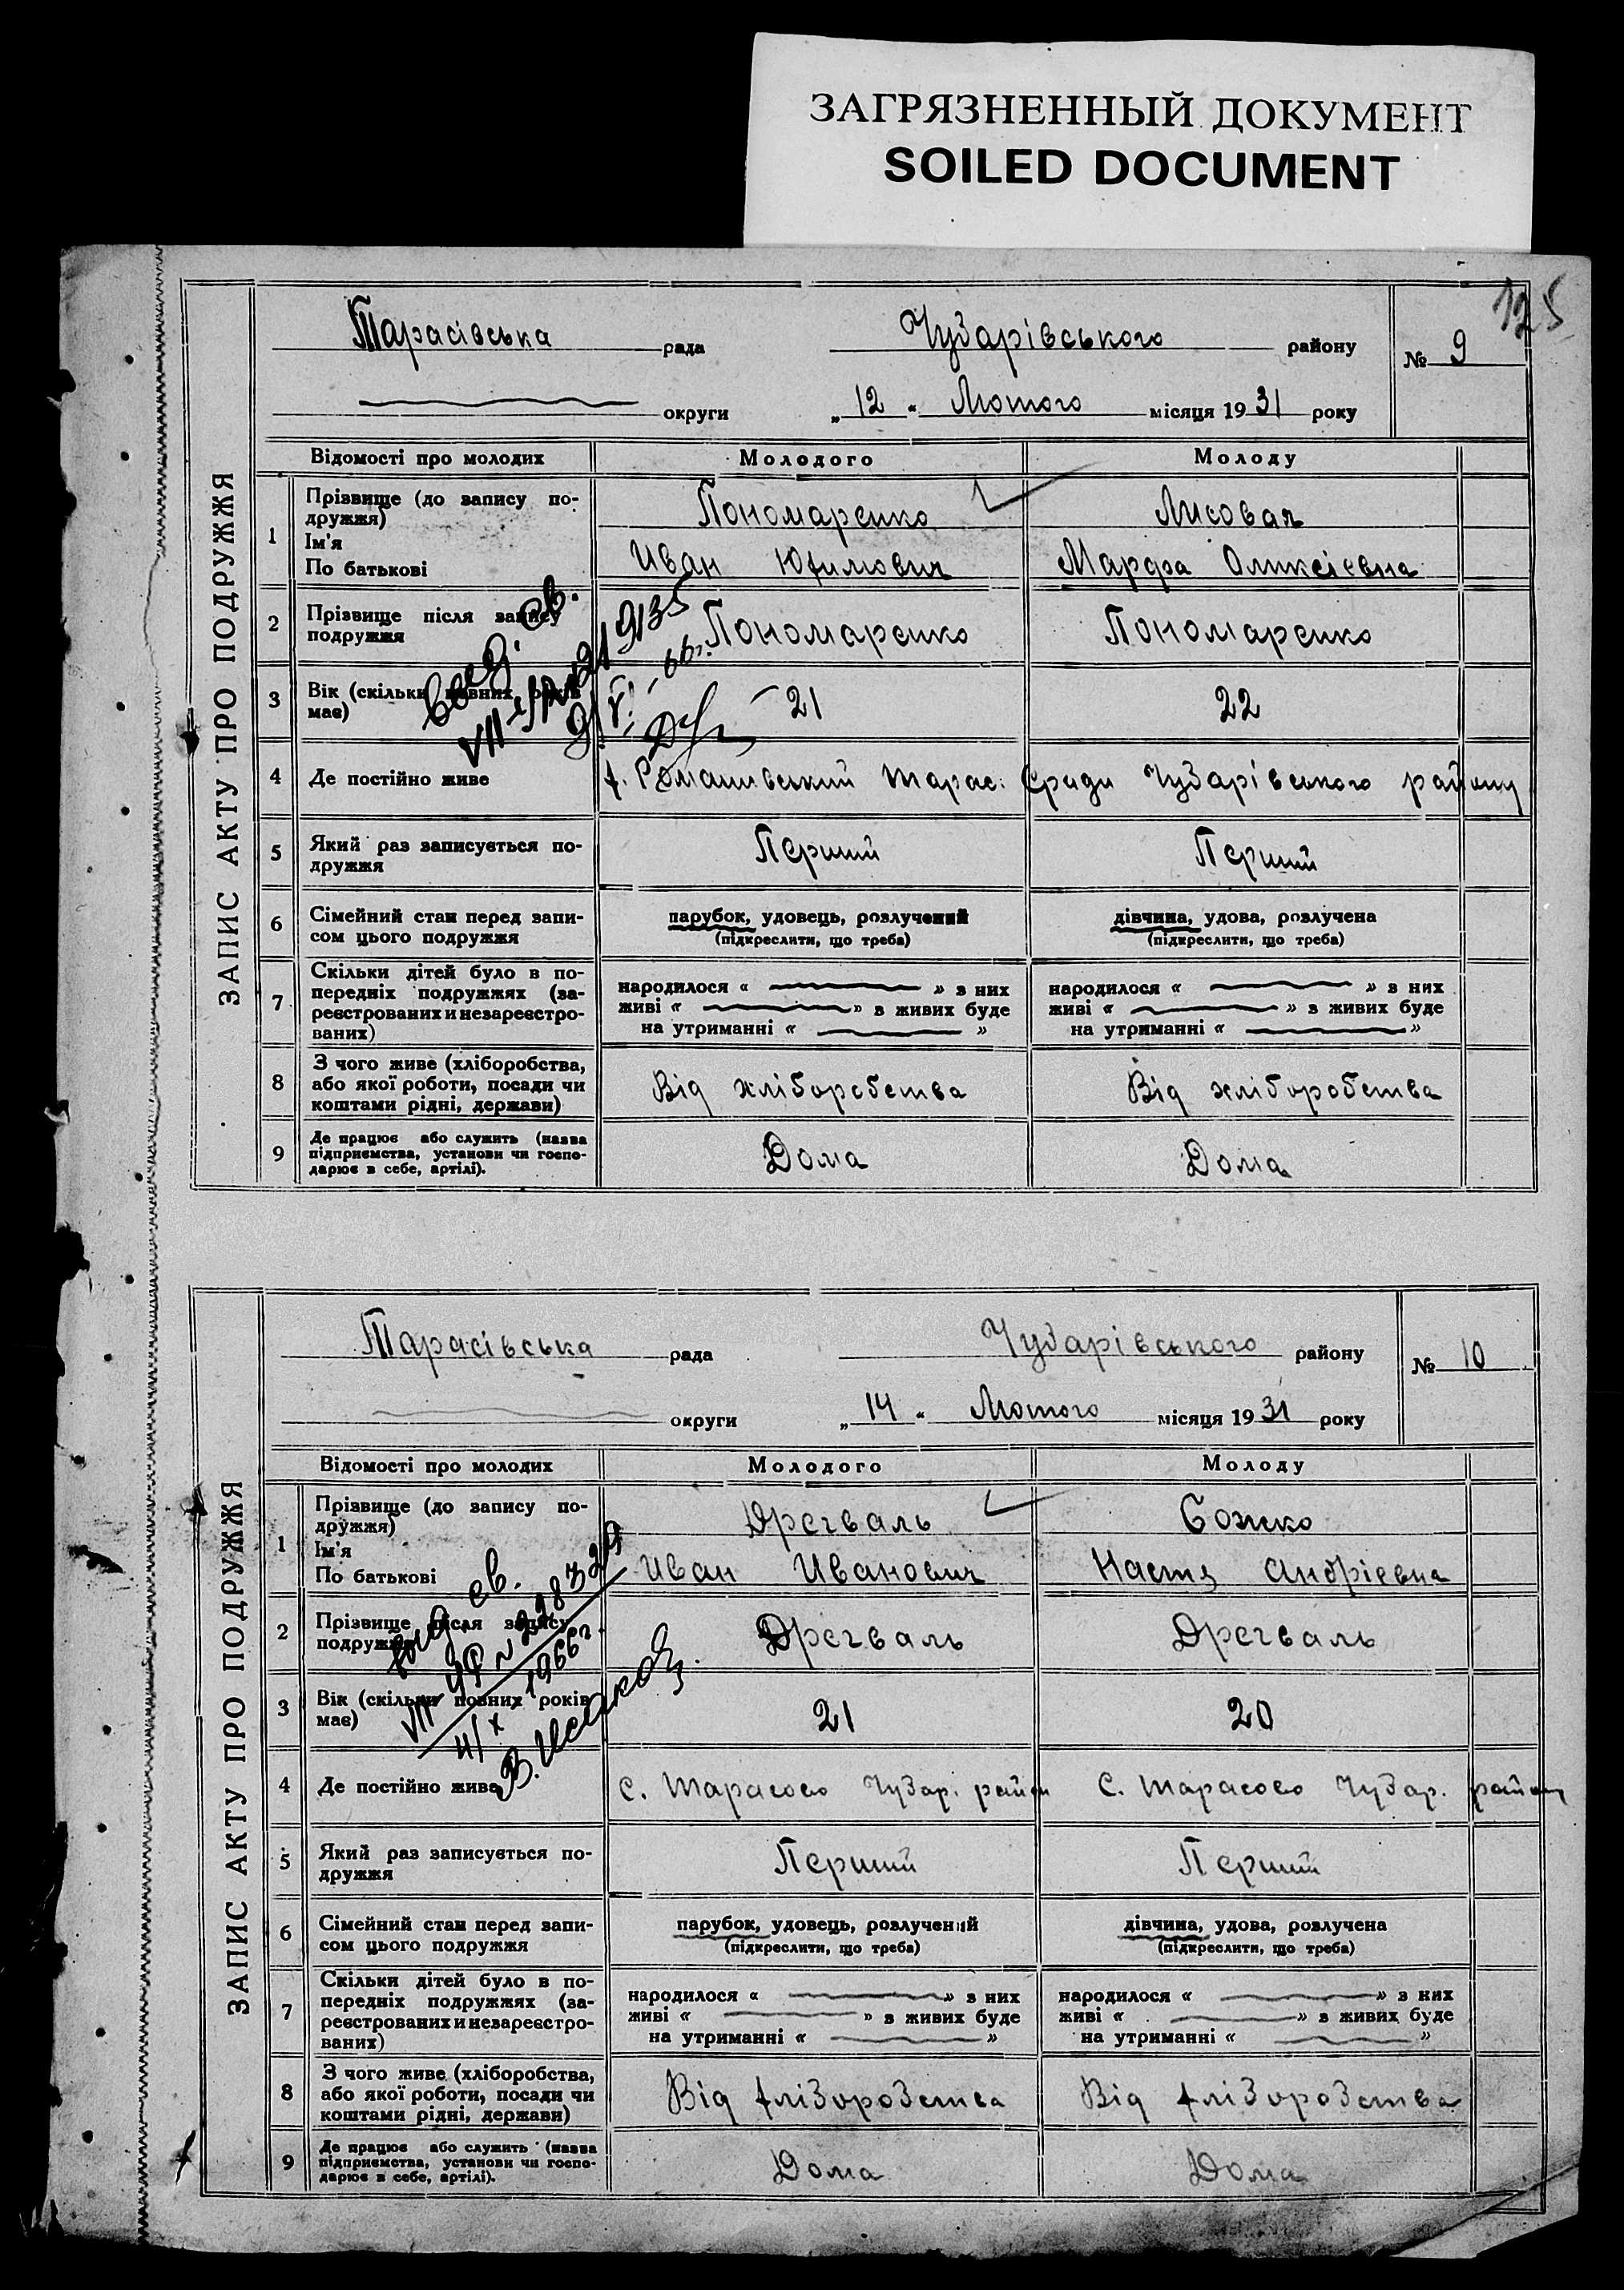 ЗАГРЯЗНЕННЫЙ ДОКУМЕНТ
SOILED DOCUMENT
125
ЗАПИС АКТУ ПРО ПОДРУЖЖЯ
Тарасівська рада Чубарівського району № 9
округи „ 12 “ Лютого місяця 19 31 року
Відомості про молодих Молодого Молоду
1 Прізвище (до запису по-
дружжя) Пономаренко Лисовая
Ім'я
По батькові Иван Юхимович Марфа Оликсіевна
2 Прізвище після запису
подружжя Пономаренко Пономаренко
3 Вік (скільки повних років
має) 21 22
4 Де постійно живе х. Ромашивський Тарас. Сради Чубарівського району
5 Який раз записується по-
дружжя Перший Перший
6 Сімейний стан перед запи-
сом цього подружжя
парубок, удовець, розлучений дівчина, удова, розлучена
(підкреслити, що треба) (підкреслити, що треба)
7 Скільки дітей було в по-
передніх подружжях (за-
реєстрованих и незареєстро-
ваних)
народилося « » з них народилося « » з них
живі « » в живих буде живі « » в живих буде
на утриманні « » на утриманні « »
8 З чого живе (хліборобства,
або якої роботи, посади чи
коштами рідні, держави)
Від хліборобства Від хліборобства
9 Де працює або служить (назва
підприємства, установи чи госпо-
дарює в себе, артілі).
Дома Дома
ЗАПИС АКТУ ПРО ПОДРУЖЖЯ
Тарасівська рада Чубарівського району № 10
округи „ 14 “ Лютого місяця 19 31 року
Відомості про молодих Молодого Молоду
1 Прізвище (до запису по-
дружжя) Дрегваль Божко
Ім'я
По батькові Иван Иванович Настя Андріевна
2 Прізвище після запису
подружжя Дрегваль Дрегваль
3 Вік (скільки повних років
має) 21 20
4 Де постійно живе С. Тарасово Чубар. район С. Тарасово Чубар. району
5 Який раз записується по-
дружжя Перший Перший
6 Сімейний стан перед запи-
сом цього подружжя
парубок, удовець, розлучений дівчина, удова, розлучена
(підкреслити, що треба) (підкреслити, що треба)
7 Скільки дітей було в по-
передніх подружжях (за-
реєстрованих и незареєстро-
ваних)
народилося « » з них народилося « » з них
живі « » в живих буде живі « » в живих буде
на утриманні « » на утриманні « »
8 З чого живе (хліборобства,
або якої роботи, посади чи
коштами рідні, держави)
Від хліборобства Від хліборобства
9 Де працює або служить (назва
підприємства, установи чи госпо-
дарює в себе, артілі).
Дома Дома